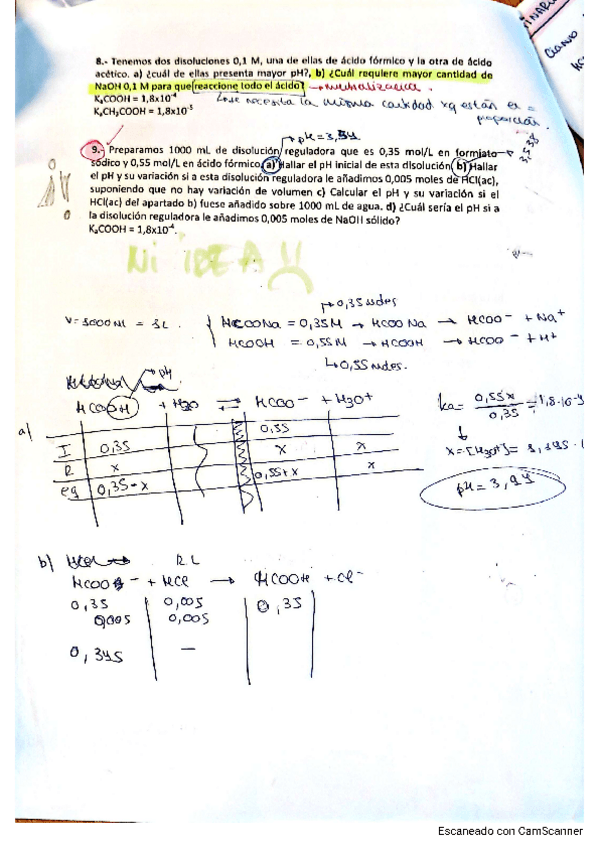 8.- Tenemos dos disoluciones 0,1 M, una de ellas de ácido fórmico y la otra de ácido
acético. a) ¿cuál de ellas presenta mayor pH?, b) ¿Cuál requiere mayor cantidad de
NaOH 0,1 M para que reaccione todo el ácido? → neutralización.
KₐCOOH = 1,8x10⁻⁴ se necesita la misma cantidad xq están en =
KₐCH₃COOH = 1,8x10⁻⁵ proporción.
→ pH = 3,54
9.- Preparamos 1000 mL de disolución reguladora que es 0,35 mol/L en formiato
sódico y 0,55 mol/L en ácido fórmico. a) Hallar el pH inicial de esta disolución b) Hallar
el pH y su variación si a esta disolución reguladora le añadimos 0,005 moles de HCl(ac),
suponiendo que no hay variación de volumen c) Calcular el pH y su variación si el
HCl(ac) del apartado b) fuese añadido sobre 1000 mL de agua. d) ¿Cuál sería el pH si a
la disolución reguladora le añadimos 0,005 moles de NaOH sólido?
KₐCOOH = 1,8x10⁻⁴.
Ni IDEA
→ 0,35 moles
HCOONa = 0,35M → HCOONa → HCOO⁻ + Na⁺
HCOOH = 0,55M → HCOOH → HCOO⁻ + H⁺
↳ 0,55 moles.
pH
HCOOH + H₂O ⇌ HCOO⁻ + H₃O⁺
a)
0,55
I 0,35 x x
R x 0,55+x x
eq 0,35-x
ka = 0,55x / 0,35 = 1,8·10⁻⁴
↓
x = [H₃O⁺] =
pH = 3,94
b)
HCOO⁻ + HCl → HCOOH + Cl⁻
0,35 0,005 0,35
0,005 0,005
0,345 —
Escaneado con CamScanner